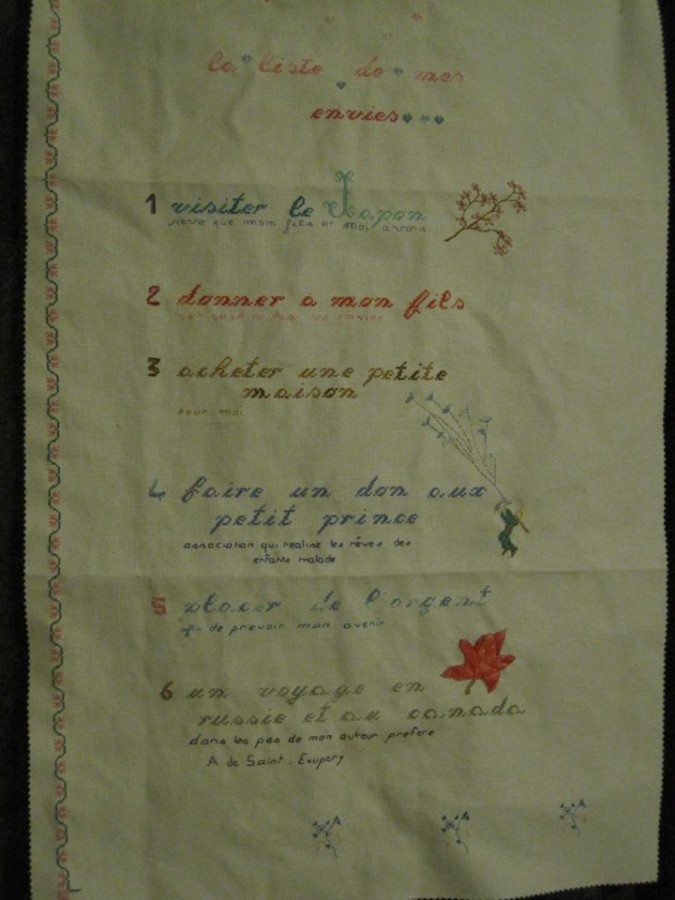 la liste de mes
envies...
1 visiter le Japon
reve que mon fils et moi avons...
2 donner a mon fils
3 acheter une petite
maison
pour moi
4 faire un don aux
petit prince
association qui realise les rêves des
enfants malade
5 placer de l'argent
afin de prevoir mon avenir
6 un voyage en
russie et au canada
dans les pas de mon auteur prefere
A de Saint-Exupery